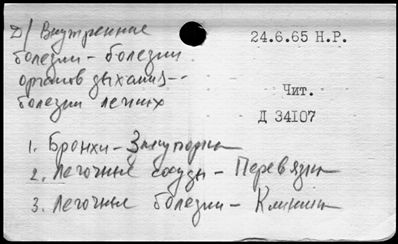 Д/ Внутренние
болезни – болезни
органов дыхания –
болезни легких
24.6.65 Н.Р.
Чит.
Д 34107
1. Бронхи – Закупорка
2. Легочные сосуды – Перевязка
3. Легочные болезни – Клиника